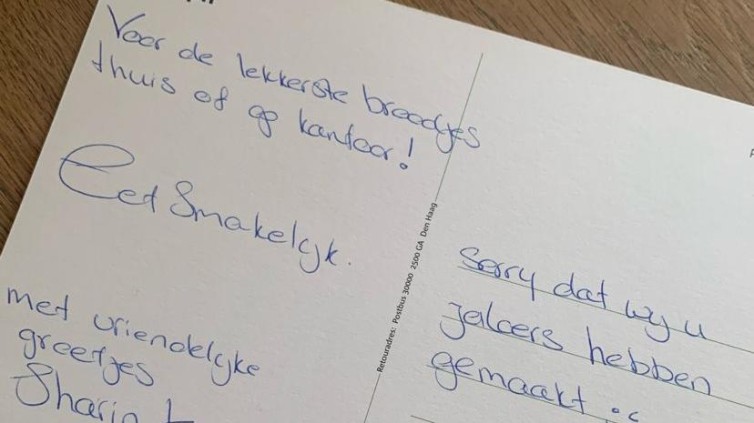 Voor de lekkerste broodjes
thuis of op kantoor!
Eet Smakelijk.
met vriendelijke
groetjes
Sharin
Retouradres: Postbus 30000 2500 GA Den Haag
Sorry dat wij u
jaloers hebben
gemaakt